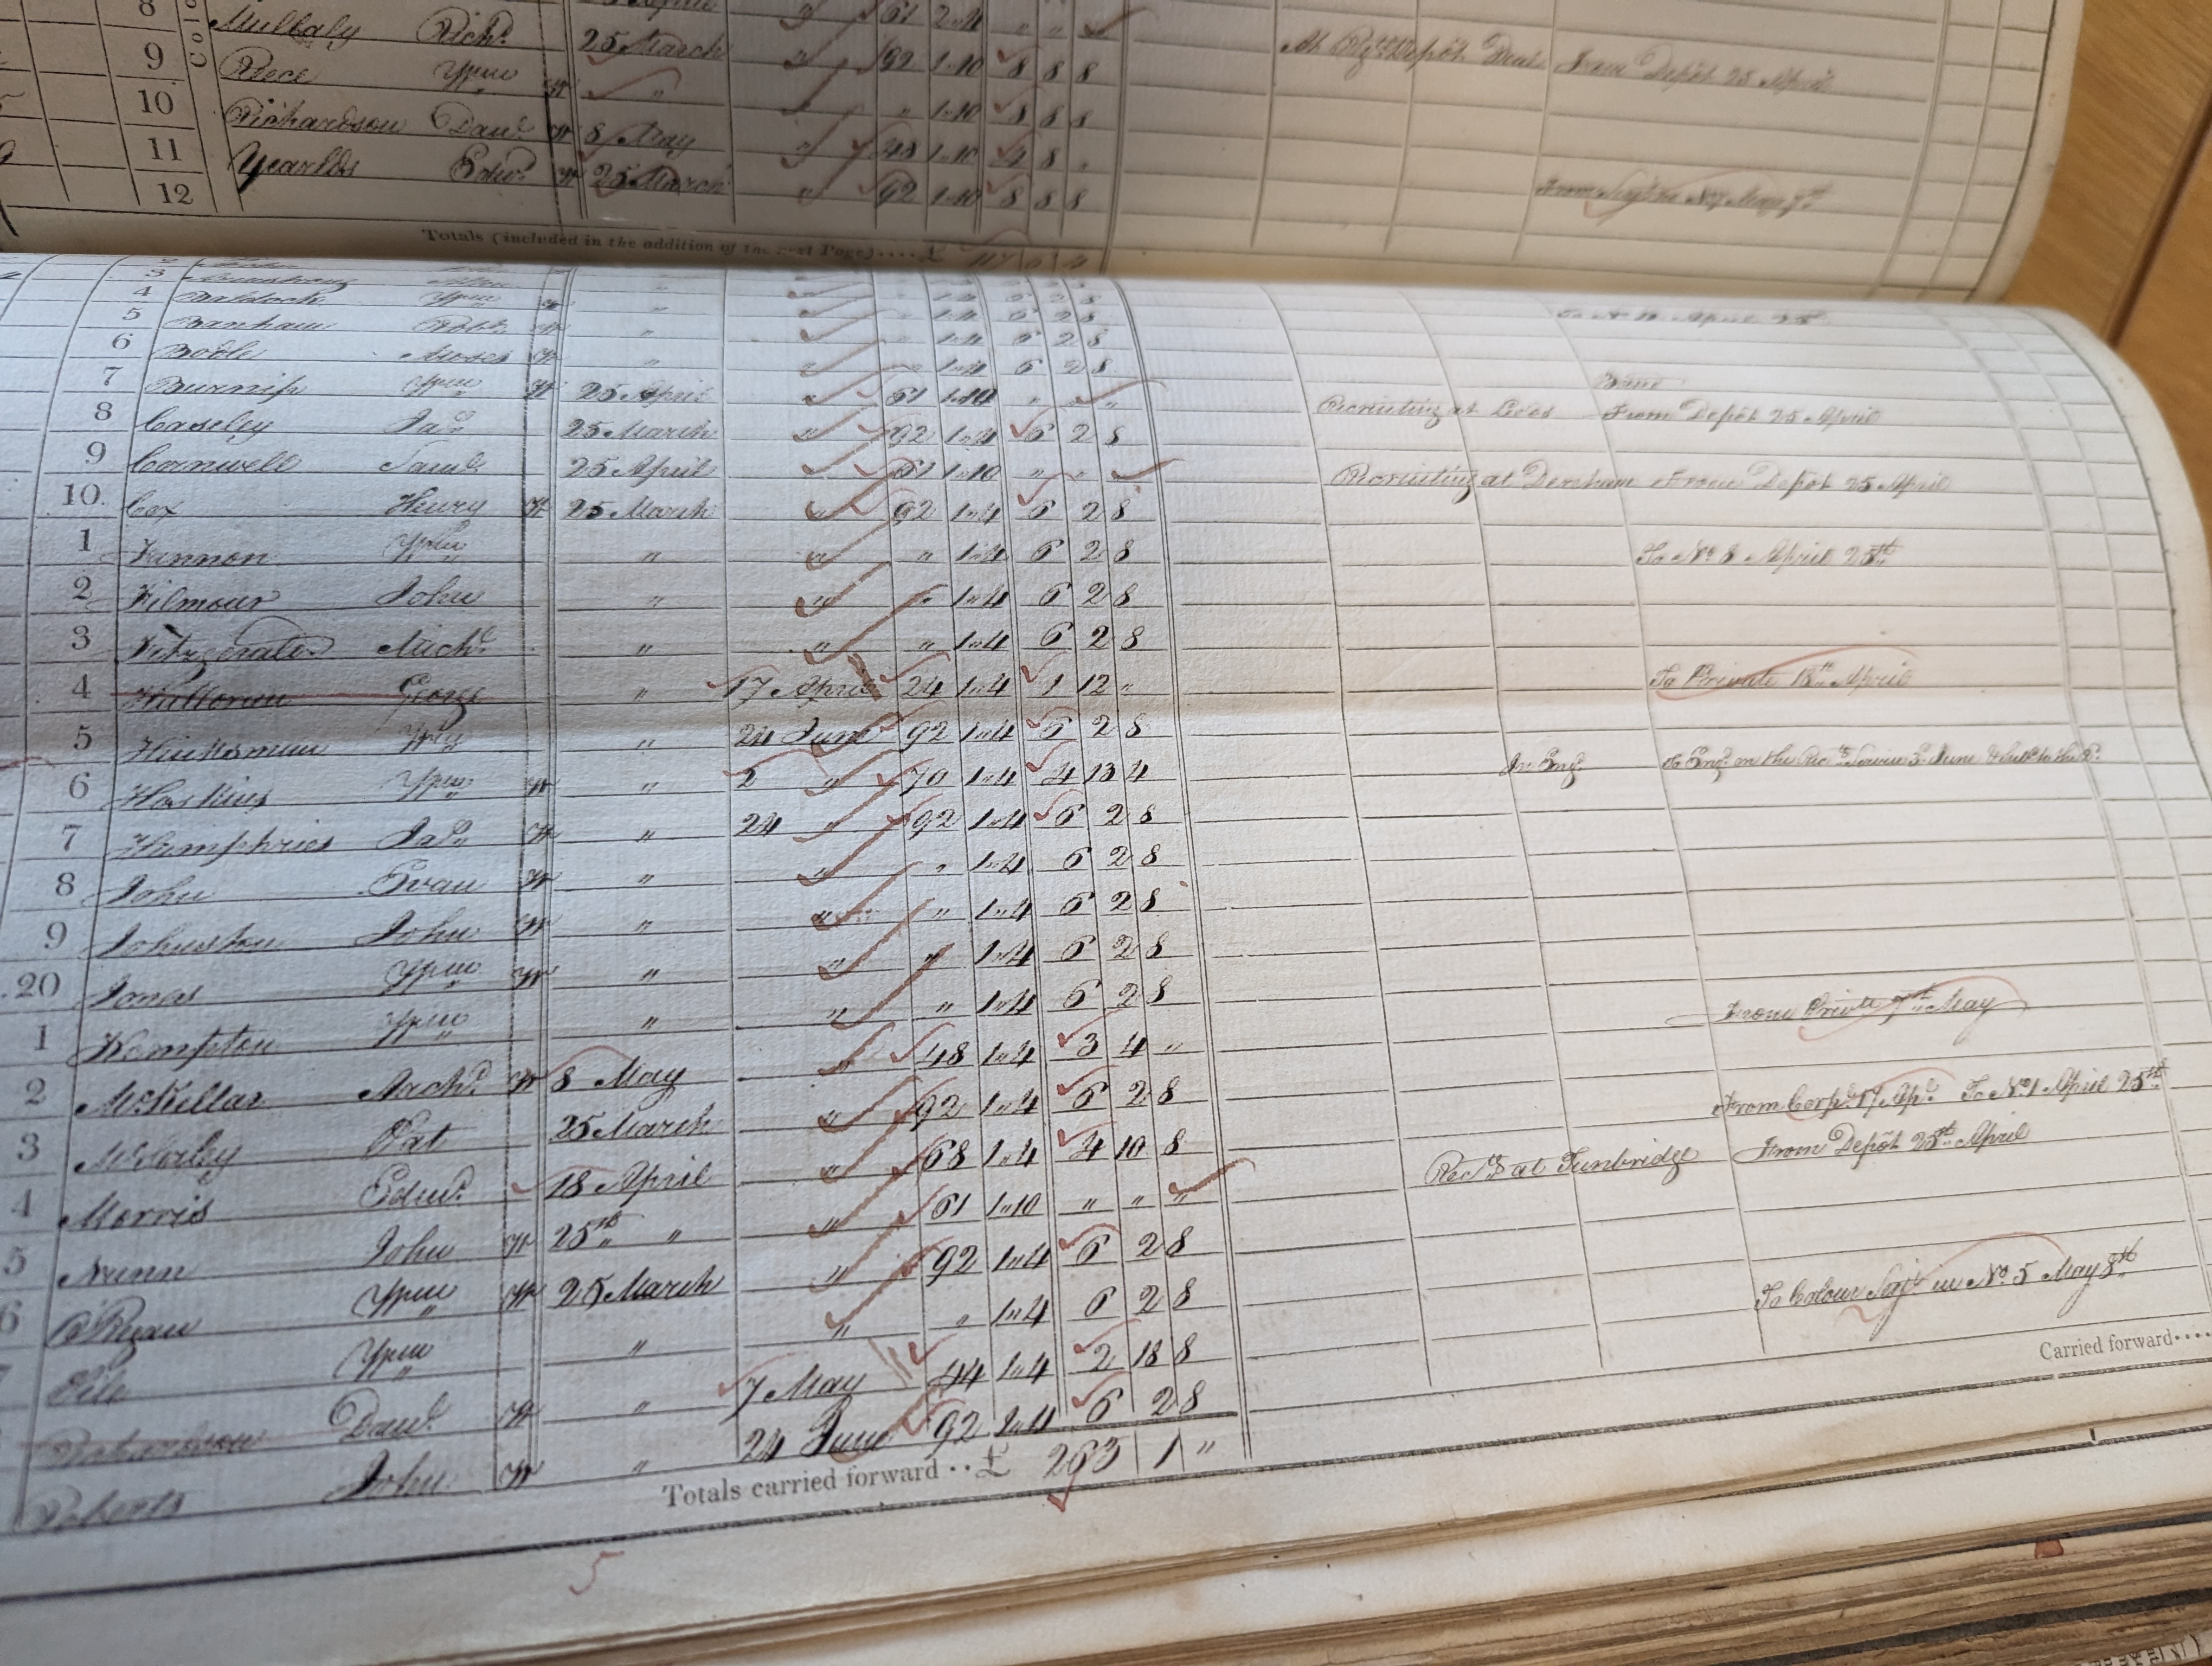 8 25 April " 61 2"4 " " "
9 Mullaly Richd. 25 March " 92 1"10 8 8 8 At Rgt. Depôt Deal From Depôt 25 April
10 Rece Wm " " " 1"10 8 8 8
11 Richardson Davd. 8 May " 48 1"10 4 8 "
12 Yearlds Edwd. 25 March " 92 1"10 8 8 8
Totals (included in the addition of the next Page) .... £
3 Armstrong
4 Baldock Wm " " 1"4 6 2 8
5 Banham Robt. " " 1"4 6 2 8
6 Boole Moses " " 1"4 6 2 8
7 Burnip Wm 25 April " 61 1"10 " " " Recruiting at Leeds From Depôt 25 April
8 Caseley Jas. 25 March " 92 1"4 6 2 8
9 Cornwell Saml. 25 April " 61 1"10 " " " Recruiting at Dereham From Depôt 25 April
10. Cox Henry 25 March " 92 1"4 6 2 8
1 Fannon Wm " " " 1"4 6 2 8 To No. 8 April 25th
2 Filmour John " " " 1"4 6 2 8
3 Fitzgerald Michl. " " " 1"4 6 2 8
4 George " 17 April 24 1"4 1 12 " To Private 18th April
5 Hinksman Wm " 24 June 92 1"4 6 2 8
6 Hoskins Wm " 2 " 70 1"4 4 13 4 In Engd. To Engd. on the Recg. Service 3d. June
7 Humphries Jas. " 24 " 92 1"4 6 2 8
8 John Evan " " " 1"4 6 2 8
9 Johnston John " " " 1"4 6 2 8
20 Jones Wm " " " 1"4 6 2 8
1 Kempton Wm " " " 1"4 6 2 8
2 McKellar Archd. 8 May " 48 1"4 3 4 " From Private 7th May
3 McSorley Pat 25 March " 92 1"4 6 2 8
4 Morris Edwd. 18 April " 68 1"4 4 10 8 From Corpl. 17 Apl. To No. 1 April 25th
5 Nunn John 25th " " 61 1"10 " " " Recg. at Tunbridge From Depôt 25th April
6 O'Ryan Wm 25 March " 92 1"4 6 2 8
Pile Wm " " " 1"4 6 2 8
Richardson Davd. " 7 May 44 1"4 2 18 8 To Colour Sejt in No. 5 May 8th
Roberts John " 24 June 92 1"4 6 2 8
Totals carried forward .. £ 263 1 "
Carried forward ....
5